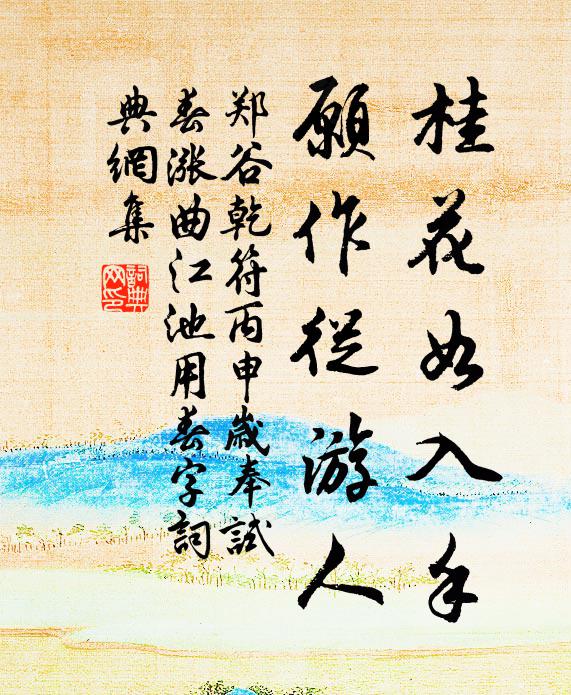 桂花如入手
願作從游人
郑谷乾符丙申歲奉試
春漲曲江池用春字詞
典網集
詞典网印